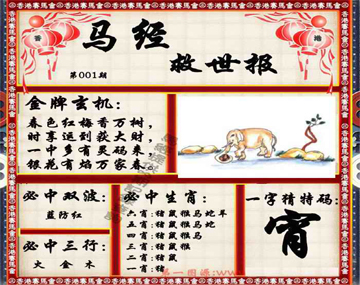 香 港
马经
救世报
第001期
金牌玄机:
春色红梅香万树,
时享运到获大财,
一中多有灵码来,
银花有焰万家春。
必中双波:
蓝防红
必中三行:
火 金 木
必中生肖:
六肖:猪鼠猴马蛇羊
五肖:猪鼠猴马蛇
四肖:猪鼠猴马
三肖:猪鼠猴
二肖:猪鼠
一肖:猪
一字猜特码:
宵